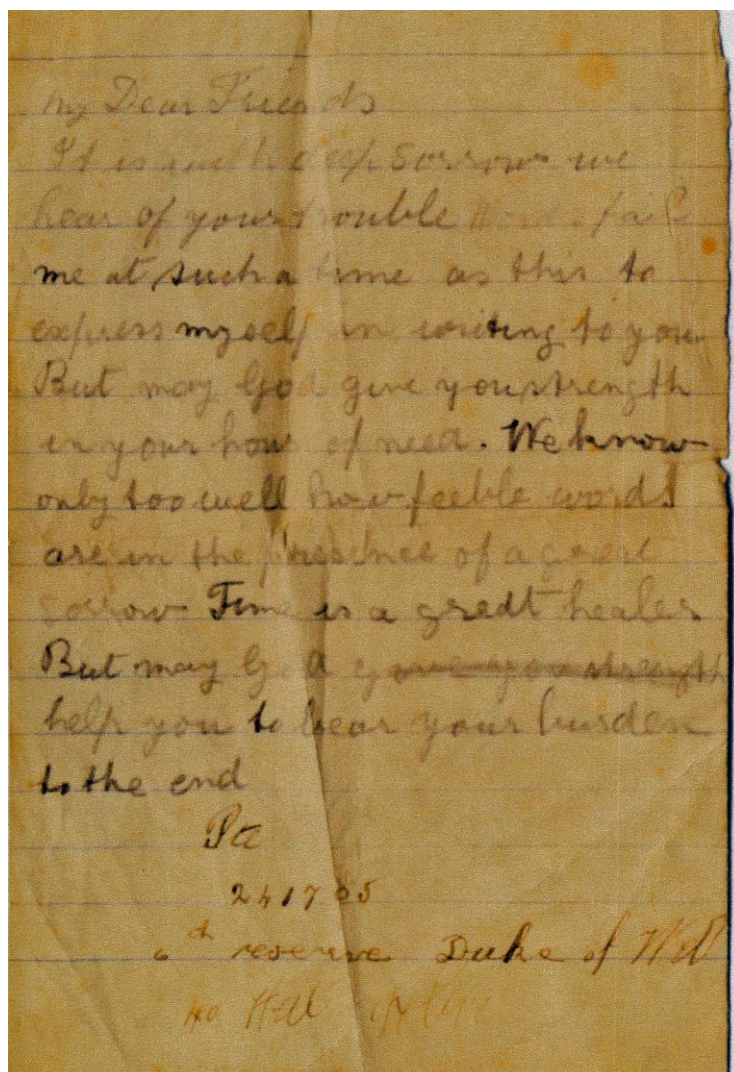 My Dear Friends
It is with deep sorrow we
hear of your trouble Words fail
me at such a time as this to
express myself in writing to you
But may God give you strength
in your hour of need. We know
only too well how feeble words
are in the presence of a great
sorrow Time is a great healer
But may God give you strength
help you to bear your burden
to the end
Pte
241705
6th reserve Duke of